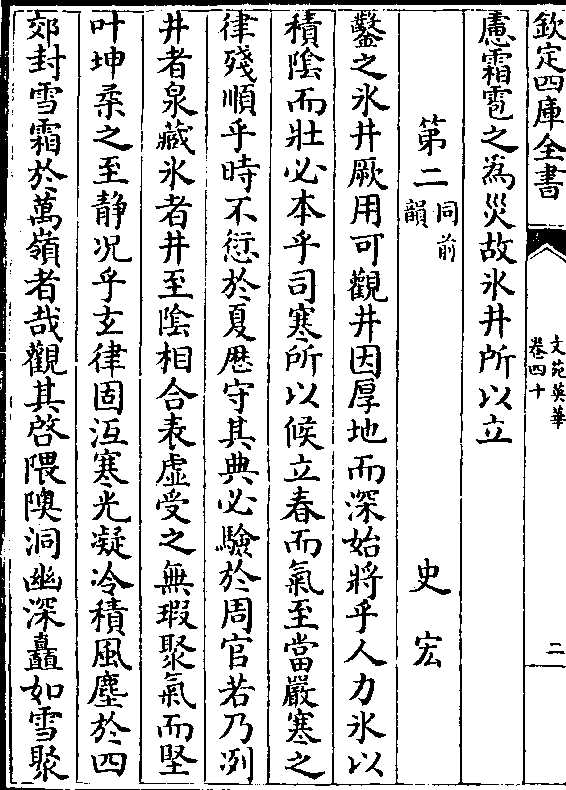 欽定四庫全書
文苑英華
卷四十
二
慮霜雹之為災故氷井所以立
第二 同前韻 史宏
鑿之氷井厥用可觀井因厚地而深始將乎人力氷以
積陰而壯必本乎司寒所以候立春而氣至當嚴寒之
律殘順乎時不愆於夏厯守其典必驗於周官若乃冽
井者泉藏氷者井至陰相合表虚受之無瑕聚氣而堅
叶坤柔之至静况乎玄律固沍寒光凝冷積風塵於四
郊封雪霜於萬嶺者哉觀其啓隈隩洞幽深矗如雪聚